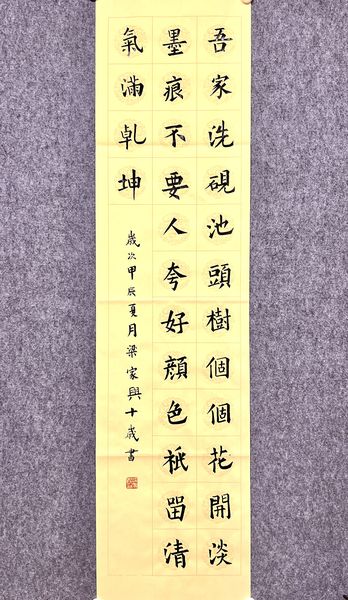 吾家洗硯池頭樹個個花開淡
墨痕不要人夸好顏色祇留清
氣滿乾坤
歲次甲辰夏月梁家興十歲書